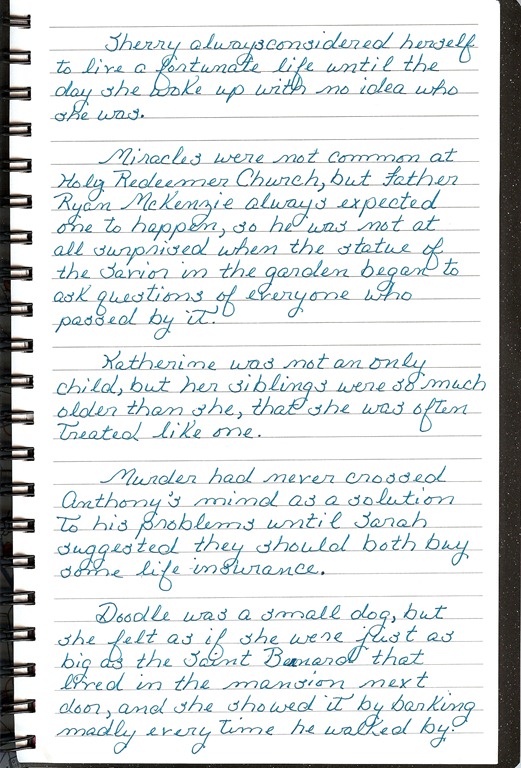 Sherry alwaysconsidered herself
to live a fortunate life until the
day she woke up with no idea who
she was.
Miracles were not common at
Holy Redeemer Church, but Father
Ryan McKenzie always expected
one to happen, so he was not at
all surprised when the statue of
the Savior in the garden began to
ask questions of everyone who
passed by it.
Katherine was not an only
child, but her siblings were so much
older than she, that she was often
treated like one.
Murder had never crossed
Anthony's mind as a solution
to his problems until Sarah
suggested they should both buy
some life insurance.
Doodle was a small dog, but
she felt as if she were just as
big as the Saint Barnard that
lived in the mansion next
door, and she showed it by barking
madly every time he walked by.